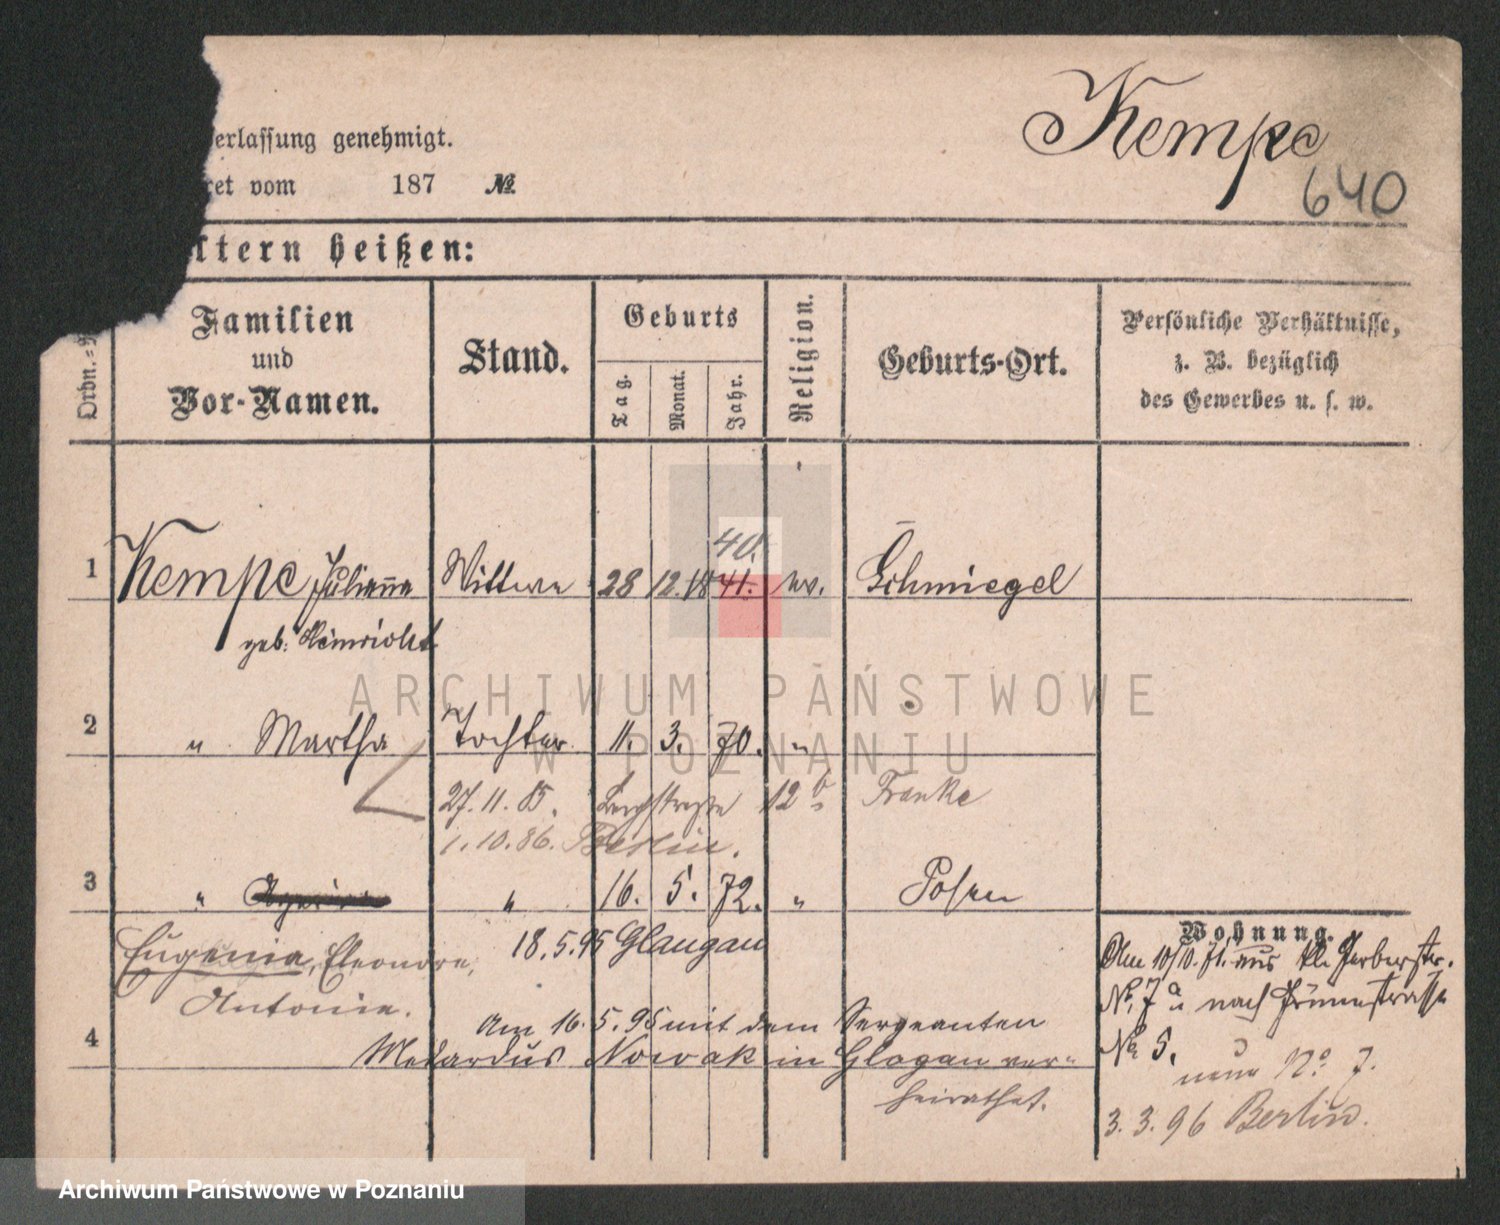 Kempe
640
erlassung genehmigt.
ret vom 187 №
ltern heißen:
Ordn.=
Familien
und
Vor-Namen.
Stand.
Geburts
Tag.
Monat.
Jahr.
Religion.
Geburts-Ort.
Persönliche Verhältnisse,
z. B. bezüglich
des Gewerbes u. s. w.
40.
1 Kempe Juliane Wittwe 28 12. 18 41. ev. Schmiegel
geb.
2 " Martha Tochter 11. 3. 70. "
27. 11. 85. 12 b Franke
1. 10. 86. Berlin.
3 " " 16. 5. 72. " Posen
Eugenia, Eleonore, 18. 5. 95 Glaugau
Antonie.
4 Am 16. 5. 95 mit dem Sergeanten
Medardus Nowak in Glogau ver-
heirathet.
Wohnung.
Am 10/10. 71. aus kl. Gerberstr.
No. 7 a nach
No 5.
neue No 7.
3. 3. 96 Berlin.
ARCHIWUM PAŃSTWOWE
W POZNANIU
Archiwum Państwowe w Poznaniu